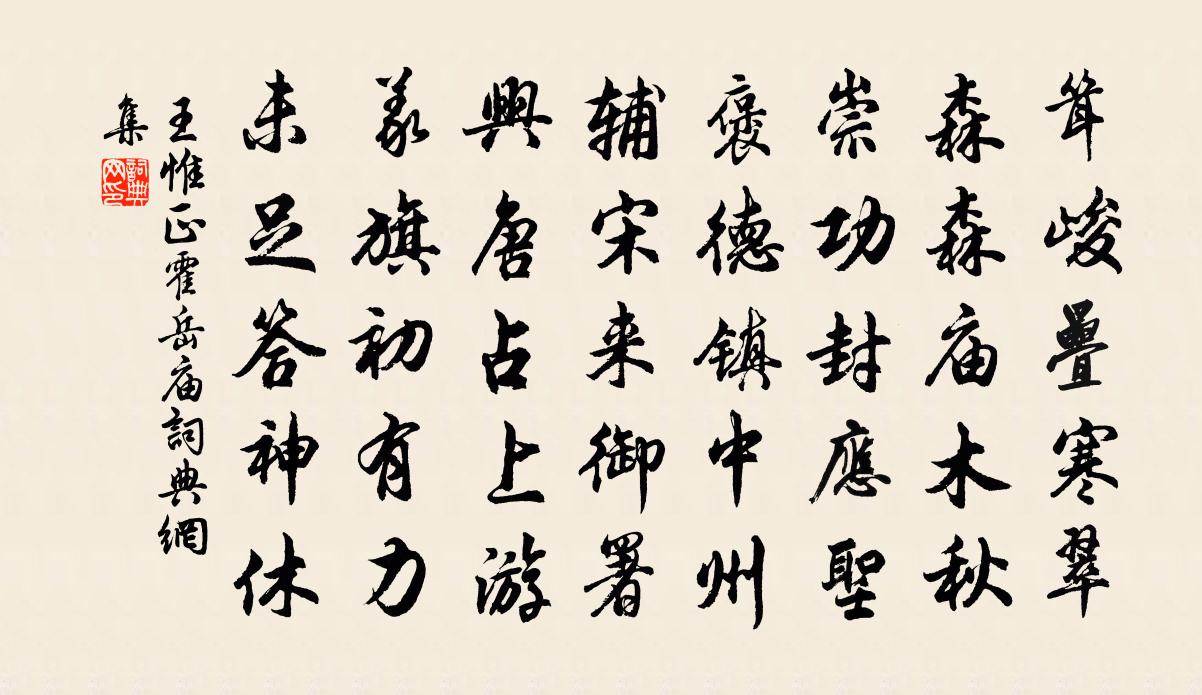 耸峻疊寒翠
森森庙木秋
崇功封應聖
褒德镇中州
辅宋来御署
興唐占上游
义旗初有力
未足答神休
王惟正霍岳庙詞典網
集
詞典
网印